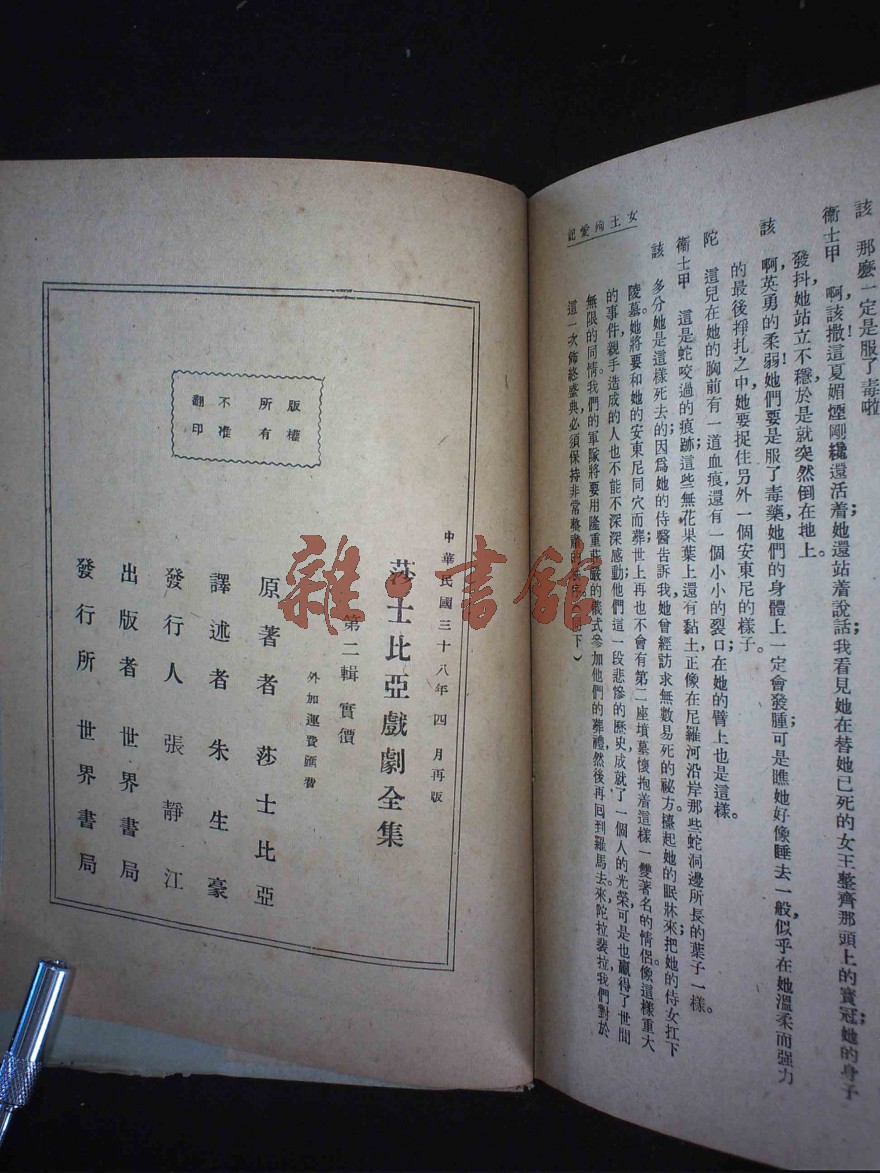 女王殉愛記
該　那麼一定是服了毒啦
衞士甲　啊，該撒！這夏媚煙剛纔還活着；她還站着說話；我看見她在替她已死的女王整齊那頭上的寶冠；她的身子
發抖，她站立不穩，於是就突然倒在地上。
該　啊，英勇的柔弱！她們要是服了毒藥，她們的身體上一定會發腫；可是瞧她好像睡去一般，似乎在她溫柔而强力
的最後掙扎之中，她要捉住另外一個安東尼的樣子。
陀　這兒在她的胸前有一道血痕，還有一個小小的裂口；在她的臂上也是這樣。
衞士甲　這是蛇咬過的痕跡；這些無花果葉上還有黏土，正像在尼羅河沿岸那些蛇洞邊所長的葉子一樣。
該　多分她是這樣死去的；因爲她的侍醫告訴我，她曾經訪求無數易死的祕方。擡起她的眠牀來；把她的侍女扛下
陵墓。她將要和她的安東尼同穴而葬；世上再也不會有第二座墳墓懷抱着這樣一雙著名的情侶。像這樣重大
的事件，親手造成的人也不能不深深感動；他們這一段悲慘的歷史，成就了一個人的光榮，可是也贏得了世間
無限的同情。我們的軍隊將要用隆重莊嚴的儀式參加他們的葬禮，然後再囘到羅馬去。來，陀拉裴拉，我們對於
這一次飾終盛典，必須保持非常整肅的下）
中華民國三十八年四月再版
莎士比亞戲劇全集
第二輯　實價
外加運費匯費
原著者　莎士比亞
譯述者　朱生豪
發行人　張靜江
出版者　世界書局
發行所　世界書局
版權
所有
不准
翻印
雜·書館